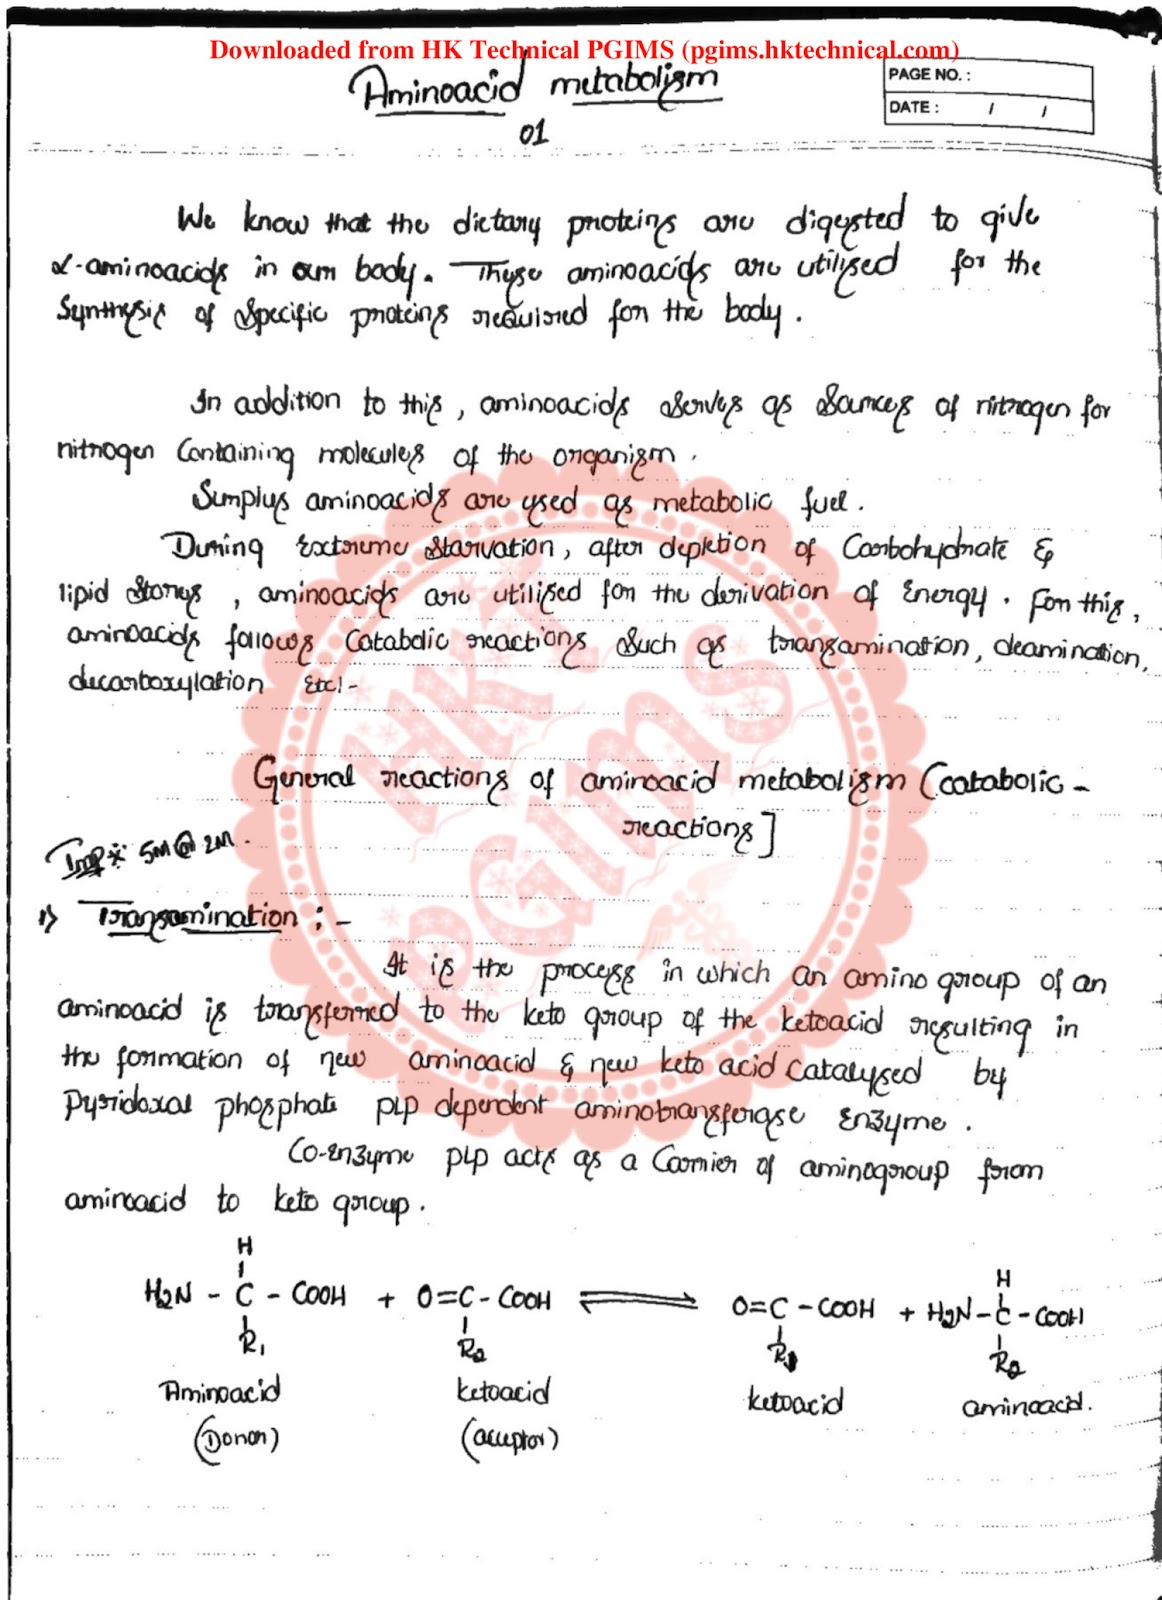 Downloaded from HK Technical PGIMS (pgims.hktechnical.com)
Aminoacid metabolism
PAGE NO. :
DATE : / /
01
We know that the dietary proteins are digested to give
α-aminoacids in our body. These aminoacids are utilised for the
Synthesis of Specific proteins required for the body.
In addition to this, aminoacids serves as sources of nitrogen for
nitrogen Containing molecules of the organism.
Surplus aminoacids are used as metabolic fuel.
During Extreme starvation, after depletion of Carbohydrate &
lipid stores, aminoacids are utilised for the derivation of Energy. For this,
aminoacids follows Catabolic reactions such as transamination, deamination,
decarboxylation Etc:-
General reactions of aminoacid metabolism (catabolic-
reactions]
Imp* 5M @ 2M.
1) Transamination :-
It is the process in which an amino group of an
aminoacid is transferred to the keto group of the ketoacid resulting in
the formation of new aminoacid & new keto acid Catalysed by
Pyridoxal phosphate PLP dependent aminotransferase Enzyme.
Co-Enzyme PLP acts as a Carrier of aminogroup from
aminoacid to keto group.
H H
H2N - C - COOH + O=C - COOH ⇌ O=C - COOH + H2N - C - COOH
R1 R2 R1 R2
Aminoacid ketoacid ketoacid aminoacid.
(Donor) (acceptor)
HK
PGIMS